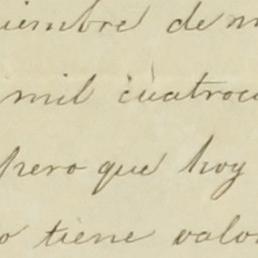 iembre de m
mil cuatroc
pero que hoy
o tiene valo